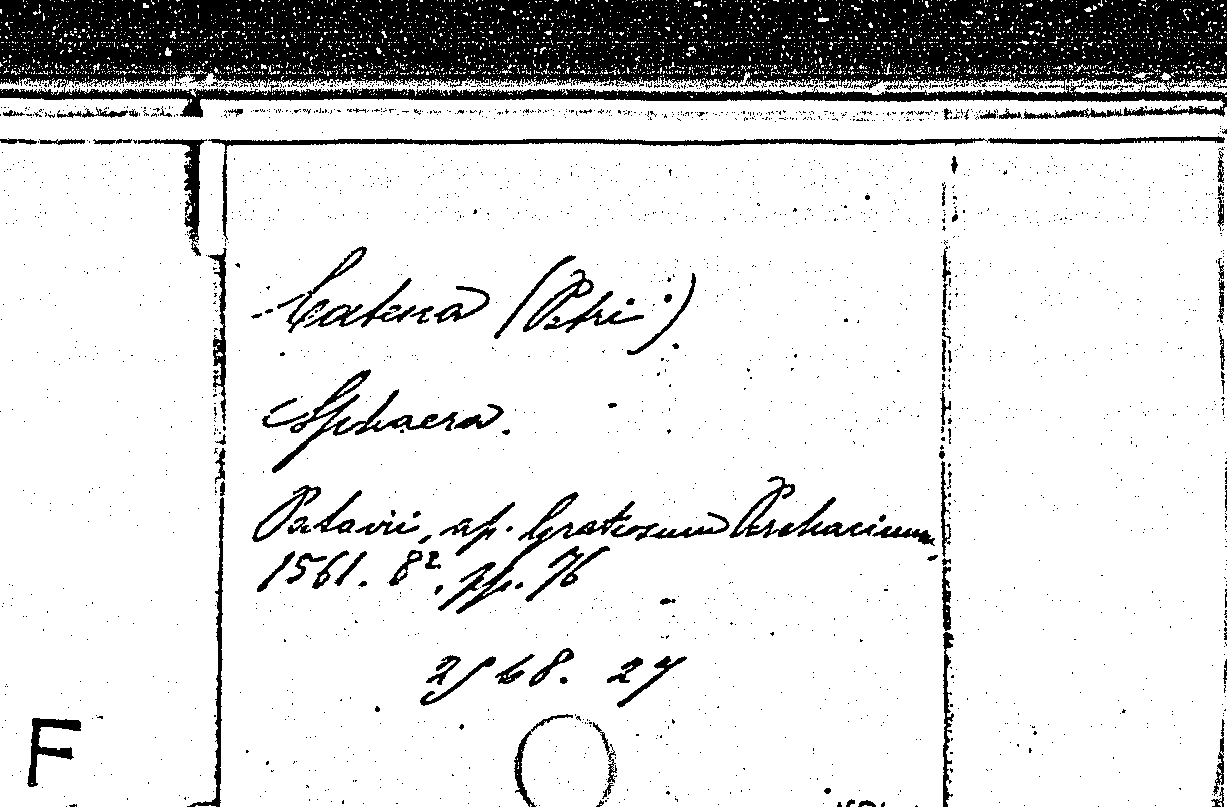 Catena (Petri).
Sphaera.
Patavii, ap. Gratiosum Perchacinum,
1561. 8º, pp. 76
68. 27
F